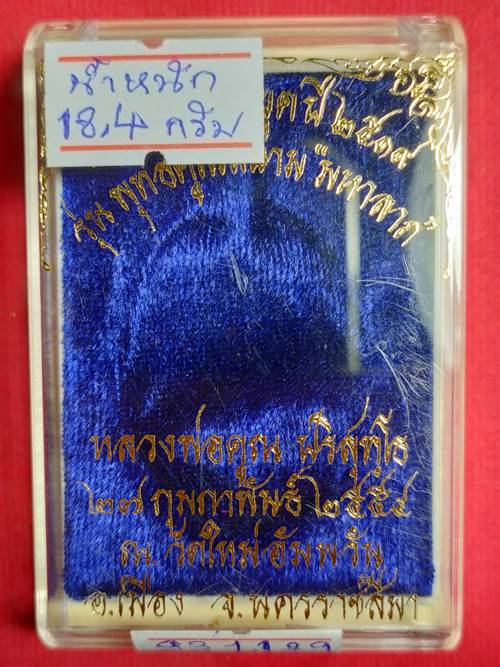 น้ำหนัก
18.4 กรัม
๒๕๑๙
รุ่น พุทธคูณสยาม ริมหาลาภ
หลวงพ่อคูณ ปริสุทฺโธ
๒๗ กุมภาพันธ์ ๒๕๕๔
ณ. วัดใหม่อัมพวัน
อ.เมือง จ.นครราชสีมา